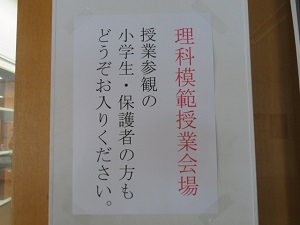 理科模範授業会場
授業参観の
小学生・保護者の方も
どうぞお入りください。